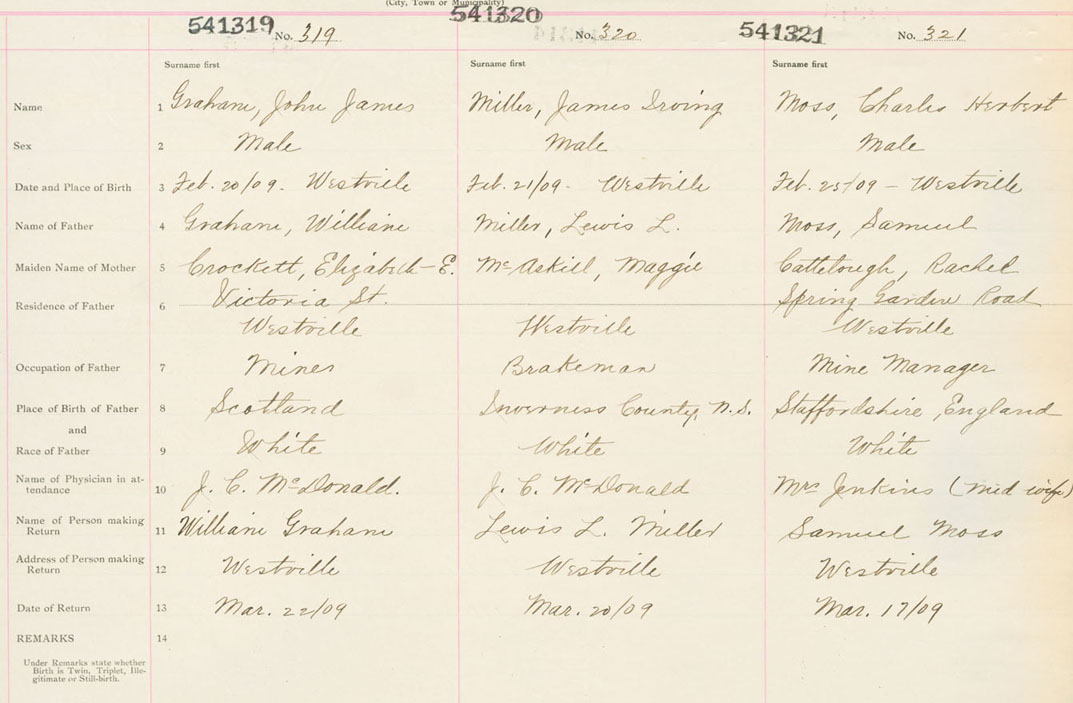 (City, Town or Municipality)
541319 No. 319
541320 No. 320
541321 No. 321
Surname first Surname first Surname first
Name 1 Graham, John James Miller, James Irving Moss, Charles Herbert
Sex 2 Male Male Male
Date and Place of Birth 3 Feb. 20/09 - Westville Feb. 21/09 - Westville Feb. 25/09 - Westville
Name of Father 4 Graham, William Miller, Lewis L. Moss, Samuel
Maiden Name of Mother 5 Crockett, Elizabeth E. McAskill, Maggie Rachel
Residence of Father 6 Victoria St. Spring Garden Road
Westville Westville Westville
Occupation of Father 7 Miner Brakeman Mine Manager
Place of Birth of Father 8 Scotland Inverness County, N.S. Staffordshire, England
and
Race of Father 9 White White White
Name of Physician in at-
tendance 10 J. C. McDonald. J. C. McDonald Mrs Jenkins (mid wife)
Name of Person making
Return 11 William Graham Lewis L. Miller Samuel Moss
Address of Person making
Return 12 Westville Westville Westville
Date of Return 13 Mar. 22/09 Mar. 20/09 Mar. 17/09
REMARKS 14
Under Remarks state whether
Birth is Twin, Triplet, Ille-
gitimate or Still-birth.